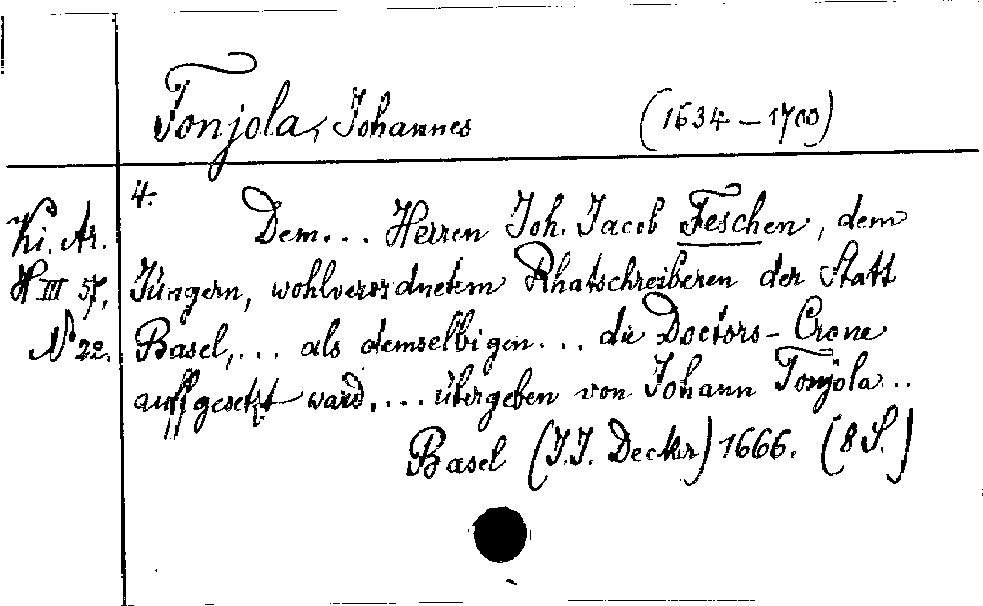 Tonjola, Johannes (1634-1700)
4.
Ki. Ar.
H III 57,
N° 22.
Dem... Herren Joh. Jacob Feschen, dem
Jüngern, wohlverordnetem Rhatschreiberen der Statt
Basel,... als demselbigen... die Doctors-Crone
auffgesetzt ward,... übergeben von Johann Tonjola..
Basel (J.J. Decker) 1666. (8 S.)